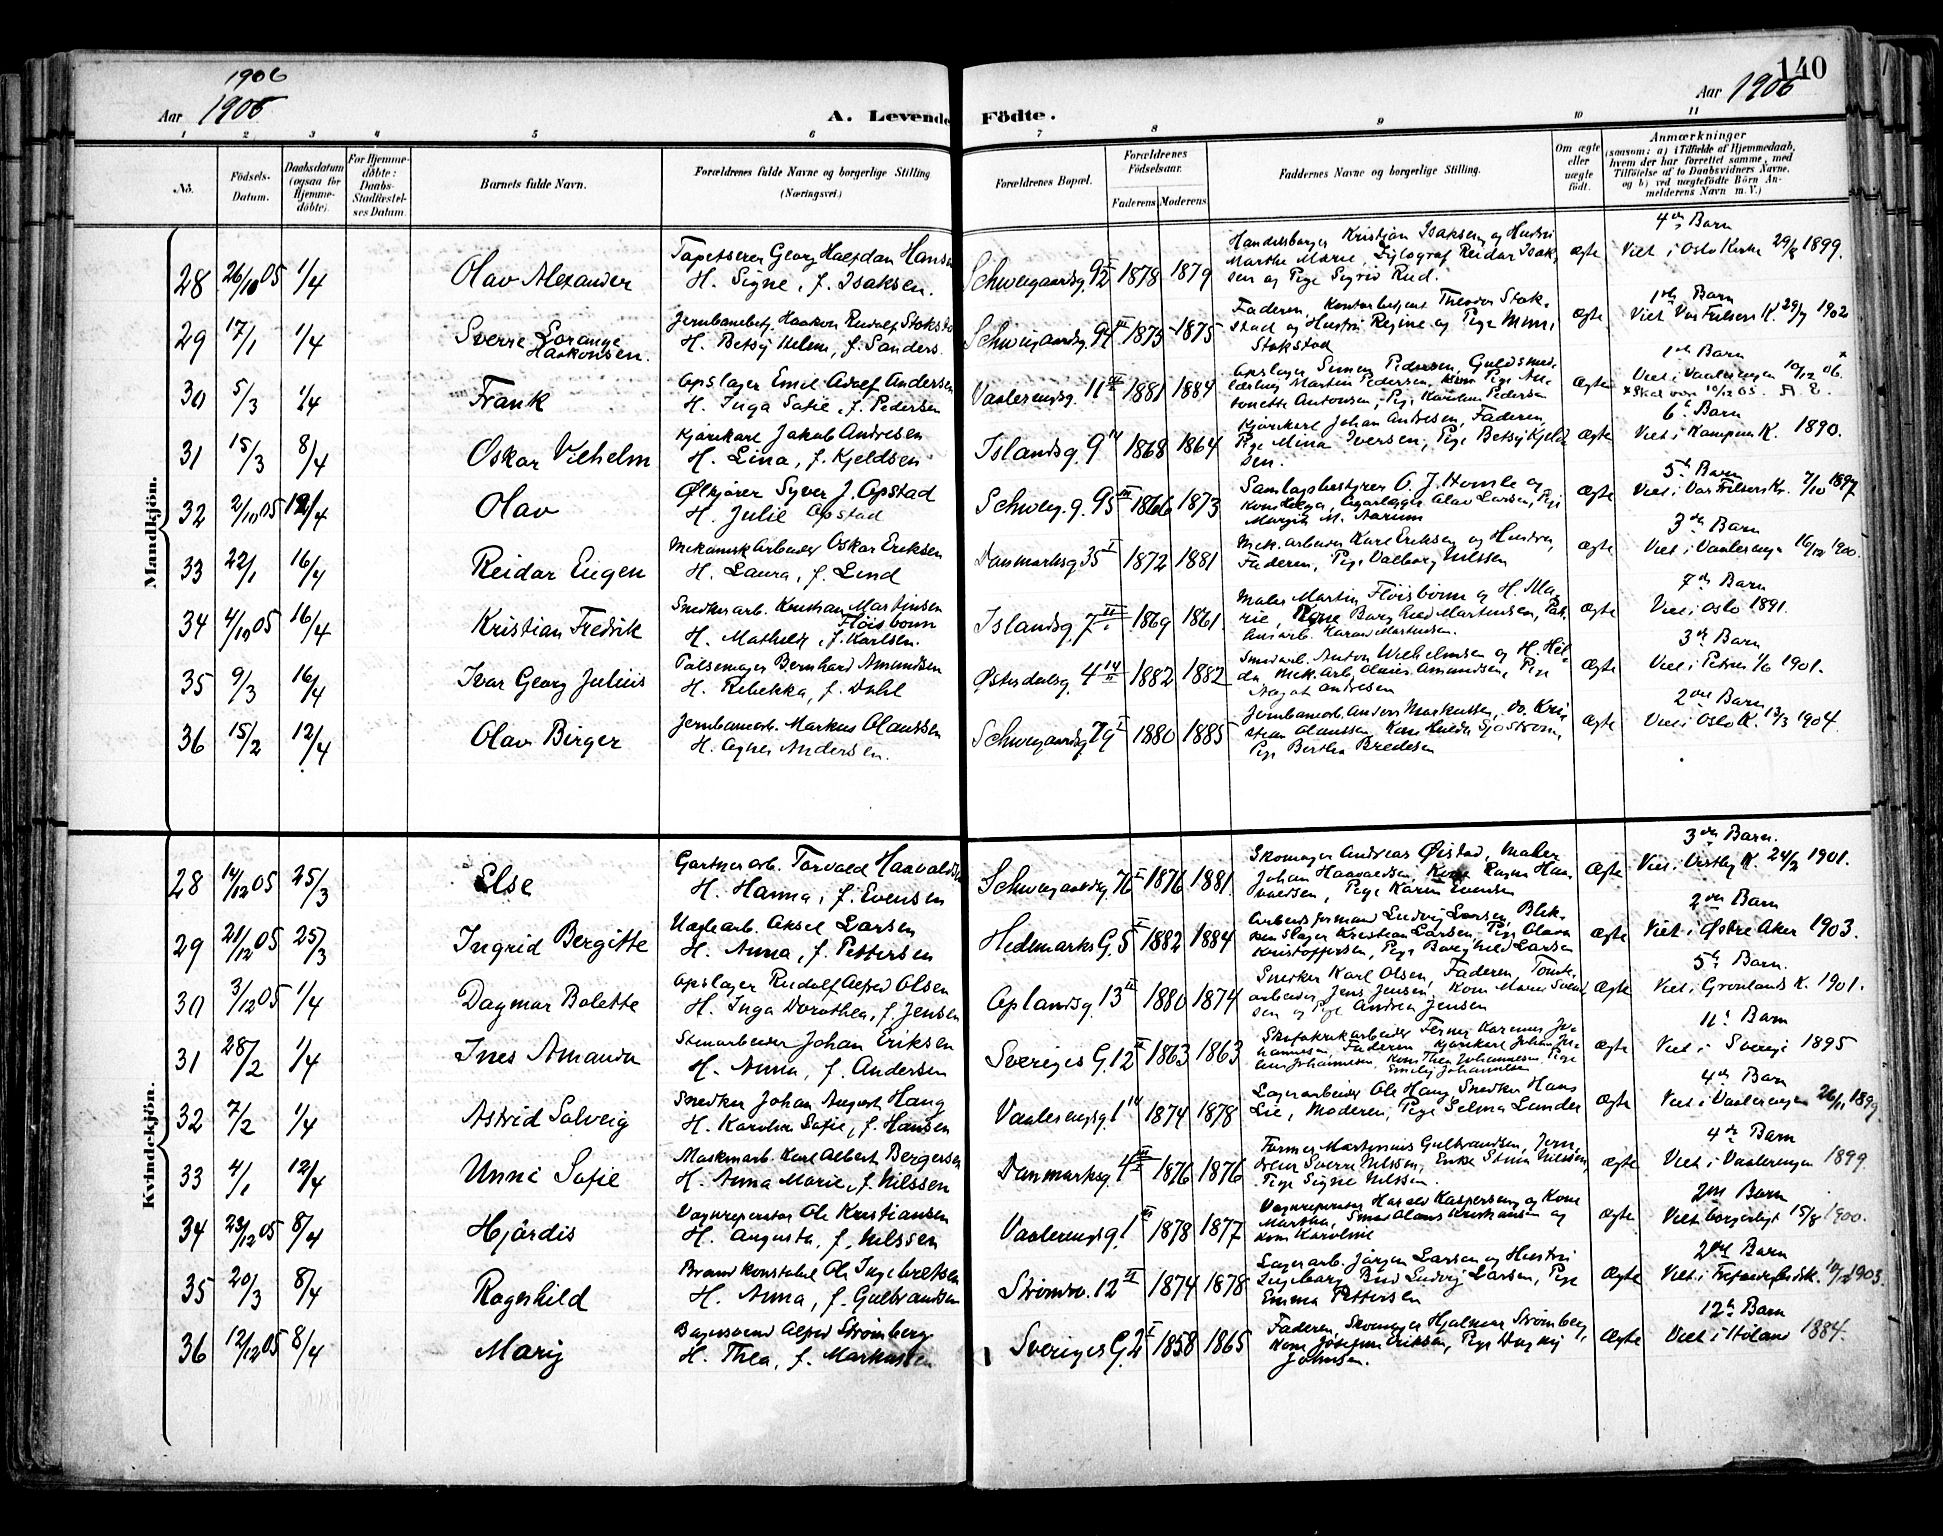 140
1906
Aar 1905
A. Levende Födte.
Aar 1906
1 2 3 4 5 6 7 8 9 10 11
No.
Födsels-Datum.
Daabsdatum (ogsaa for Hjemme-döbte).
For Hjemme-döbte: Daabs-Stadfæstel-ses Datum.
Barnets fulde Navn.
Forældrenes fulde Navne og borgerlige Stilling (Næringsvei.)
Forældrenes Bopæl.
Forældrenes Födselsaar.
Faderens. Moderens.
Faddernes Navne og borgerlige Stilling.
Om ægte eller uægte födt.
Anmærkninger (saasom: a) i Tilfælde af Hjemmedaab, hvem der har forrettet samme, med Tilföielse af to Daabsvidners Navne, og b) ved uægtefödte Börn An-melderens Navn m. V.)
Mandkjön.
28 26/10 05 1/4 Olav Alexander
Tapetserer Georg Halfdan Hansen
H. Signe, f. Isaksen.
Schweigaardsg. 95 1878 1879
Handelsborger Kristian Isaksen og Hustru
Marthe Marie, Xylograf Reidar Isak-
sen og Pige Sigrid Rud.
ægte
4de Barn
Viet i Oslo Kirke 29/8 1899.
29 17/1 1/4 Sverre Lorange
Haakonsen.
Jernbanebetj. Haakon Rudolf Stokstad
H. Betsy Helene, f. Sanders.
Schweigaardsg. 94 III 1873 1875
Faderen, Kontorbetjent Theodor Stok-
stad og Hustru Regine og Pige Mimi
Stokstad
ægte
1ste Barn
Viet Vor Frelsers K. 29/7 1902
30 5/3 1/4 Frank
Opslager Emil Adolf Andersen
H. Inga Sofie, f. Pedersen
Vaalerengg. 11 III 1881 1884
Opslager Simen Pedersen, Guldsmed-
lærling Martin Pedersen, Pige An-
tonette Antonsen, Pige Karoline Pedersen
ægte
1ste Barn
Viet i Vaalerengen 10/12 06. x
x Skal være 10/12 05. A. E.
31 15/3 8/4 Oskar Vilhelm
Kjørekarl Jakob Andresen
H. Lina, f. Kjeldsen
Islandsg. 9 IV 1868 1864
Kjørekarl Johan Andresen, Faderen,
Pige Mina Iversen, Pige Betsy Kjeld
sen.
ægte
6te Barn
Viet i Kampen K. 1890.
32 2/10 05 12/4 Olav
Ølkjører Syver J. Opstad
H. Julie Opstad
Schweig. g. 95 III 1866 1873
Samlagsbestyrer O. J. Homle og
Kone Helga, Olav Larsen, Pige
Margit M. Aarum
ægte
5te Barn
Viet i Vor Frelsers K. 2/10 1897
33 22/1 16/4 Reidar Eugen
Mekanisk Arbeider Oskar Eriksen
H. Laura, f. Lind
Danmarksg 35 I 1872 1881
Mek. arbeider Karl Eriksen og Hustru,
Faderen, Pige Valborg Nilssen
ægte
3die Barn
Viet i Vaalerengen 16/12 1900.
34 4/10 05 16/4 Kristian Fredrik
Snedkerarb. Kristian Martinsen
Fløisbonn
H. Mathilde, f. Karlsen.
Islandsg 7 1869 1861.
Maler Martin Fløisbonn og H. Ma-
rie, Kone Borghild Martinsen, Fab-
ægte
7de Barn
Viet i Oslo 1891.
35 9/3 16/4 Ivar Georg Julius
Pølsemager Bernhard Amundsen
H. Rebekka, f. Dahl
Østerdalsg. 4 IV 1882 1882
Smedarb. Anton Wilhelmsen og H. Hil-
da, Mek. Arb. Olaus Amundsen, Pige
Aagot Andresen
ægte
3die Barn
Viet i Petrus 1/6 1901.
36 15/2 12/4 Olav Birger
Jernbanearb. Markus Olaussen
H. Agnes Andersen.
Schweigaardsg 79 I 1880 1885
Jernbanearb. Anders Markussen, do. Kri-
stian Olaussen, Kone Hulda Sjøstrøm,
Pige Bertha Bredesen
ægte
2det Barn
Viet i Oslo K. 13/3 1904.
Kvindekjön.
28 14/12 05 25/3 Else
Gartnerarb. Torvald Haavaldsen
H. Hanna, f. Evensen
Schweigaardsg 76 I 1876 1881.
Skomager Andreas Øistad, Maler
Johan Haavaldsen, Kone Ragna Haa-
valdsen, Pige Karen Evensen
Ægte
3die Barn.
Viet i Vestby K. 24/2 1901.
29 21/12 05 25/3 Ingrid Bergitte
Uægtearb. Aksel Larsen
H. Anna, f. Pettersen
Hedemarks G. 5 I 1882 1884
Arbeidsformand Ludvig Larsen, Blik-
kenslager Kristian Larsen, Pige Olava
Kristoffersen, Pige Borghild Larsen
ægte
2det Barn
Viet i Østre Aker 1903.
30 3/12 05 1/4 Dagmar Bolette
Opslager Rudolf Alfred Olsen
H. Inga Dorothea, f. Jensen
Oplandsg. 13 II 1880 1874
Snerker Karl Olsen, Faderen, Tomte-
arbeider Jens Jensen, Kone Marie Svend
sen og Pige Andrea Jensen
Ægte
5te Barn.
Viet i Grønlands K. 1901.
31 28/2 1/4 Ines Amanda
Stenarbeider Johan Eriksen
H. Anna, f. Andersen
Sveriges G. 12 II 1863 1863
Skofabrikarbeider Ferner Karenus Jo-
hannesen, Faderen, Kjørekarl Johan Jo-
hannessen, Kone Thea Johannesen, Pige
Emily Johannesen
ægte
11te Barn
Viet i Sverige 1895
32 7/2 1/4 Astrid Solveig
Snedker Johan August Haug
H. Karoline Sofie, f. Hansen
Vaalerengsg. 1 IV 1874 1878
Lagerarbeider Ole Haug, Snedker Hans
Lie, Moderen, Pige Selma Lunder
Ægte
4de Barn
Viet i Vaalerengen 26/11 1899.
33 4/1 12/4 Unni Sofie
Maskinarb. Karl Albert Bergersen
H. Anna Marie, f. Nilssen
Danmarksg. 4 III 1876 1876
Former Martinius Gulbrandsen, Jern-
dreier Sverre Nilssen, Enke Stina Nilssen,
Pige Signe Nilssen.
ægte
4de Barn
Viet i Vaalerengen 1899.
34 23/12 05 8/4 Hjördis
Vognreperatør Ole Kristiansen
H. Augusta, f. Nilssen
Vaalerengsg. 1 III 1878 1877
Vognreperatør Harald Kaspersen og Kone
Martha, Smed Olaus Kristiansen og
Kone Karoline
ægte
2det Barn
Viet borgerligt 15/8 1900.
35 20/3 8/4 Ragnhild
Brandkonstabel Ole Ingebretsen
H. Anna, f. Gulbrandsen
Strømsv. 12 II 1874 1878
Lagerarb. Jørgen Larsen og Hustru
Ingeborg, Bud Ludvig Larsen, Pige
Emma Pettersen
Ægte
2det Barn
Viet i Trefoldighedsk. 1903.
36 12/12 05 8/4 Mary
Bagersvend Alfred Strømberg
H. Thea, f. Markussen
Sveriges G. 2 I 1858 1865
Faderen, Skomager Hjalmar Strømberg,
Kone Josefine Eriksen, Pige Dagny
Johnsen.
Ægte
12te Barn
Viet i Høland 1884.